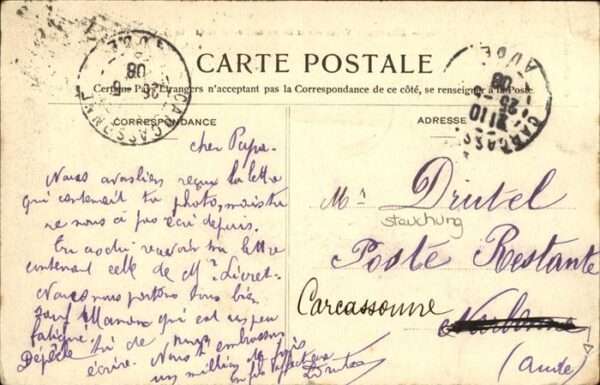 CARTE POSTALE
Certains Pays Etrangers n'acceptant pas la Correspondance de ce côté, se renseigner à la Poste
CORRESPONDANCE
ADRESSE
CARCASSONNE
AUDE
25
08
CARCASSONNE
AUDE
11 10
25
08
cher Papa.
Nous avons bien reçu ta lettre
qui contenait ta photo, mais tu
ne nous a pas écri depuis.
ta lettre
contenant celle de Mr
Nous nous portons tous bien
sauf Maman qui est un peu
fatigué.
Dépêche toi de nous
écrire. Nous t'embrassons
un million de fois
Drutel
Mr Drutel
steuchung
Poste Restante
Carcassonne
Narbonne
(Aude)